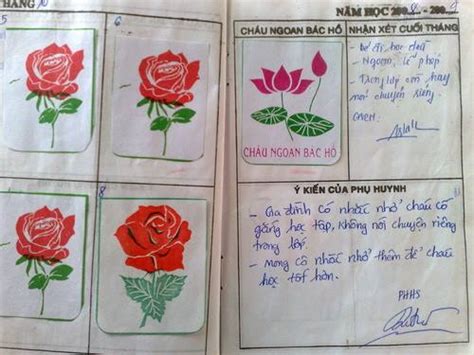 THÁNG 10
5
6
8
NĂM HỌC 200 - 200
CHÁU NGOAN BÁC HỒ
NHẬN XÉT CUỐI THÁNG
- Bé đi học đều
- Ngoan, lễ phép
- Trong lớp còn hay
nói chuyện riêng.
GVCN:
CHÁU NGOAN BÁC HỒ
Ý KIẾN CỦA PHỤ HUYNH
- Gia đình có nhắc nhở cháu cố
gắng học tập, không nói chuyện riêng
trong lớp.
- Mong cô nhắc nhở thêm để cháu
học tốt hơn.
PHHS